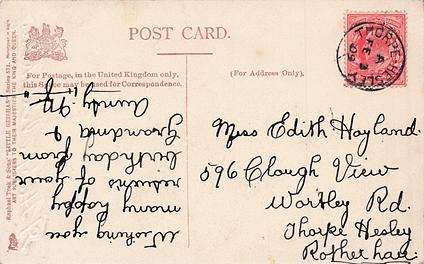 POST CARD.
For Postage, in the United Kingdom only,
this Space may be used for Correspondence.
(For Address Only).
Raphael Tuck & Sons' "LITTLE GEISHAS"
ART PUBLISHERS TO THEIR MAJESTIES THE KING AND QUEEN
THORPE-HESLEY
FE 3
09
Wishing you
many happy
returns of your
birthday from
Grandma &
Aunty
Miss Edith Hayland.
596 Clough View
Wortley Rd.
Thorpe Hesley
Rotherham